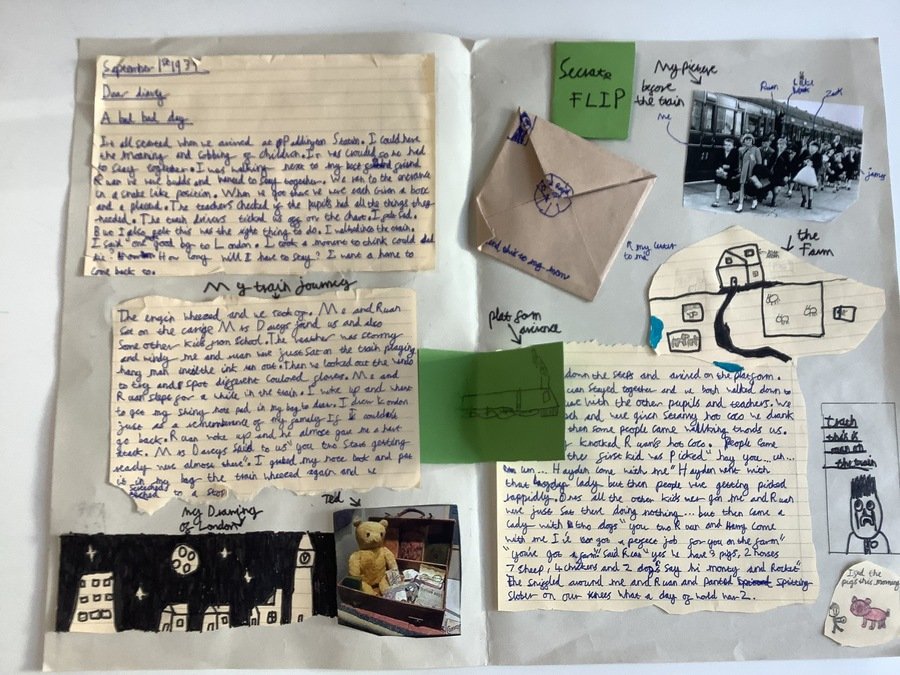 September 1st 1939
Dear diary
A bad bad day
It all started when we arrived at Paddington Station. I could hear
the moaning and sobbing of children. It was crowded so we had
to stay together. I was walking next to my best friend
Ruan we were buddys and had to stay together. We set to the entrance
in a snake like position. When we got there we were each given a box
and a placed. The teachers checked if the pupils had all the things they
needed. The train drivers ticked us off on the chart. I felt sad.
But I also felt this was the right thing to do. I walked into the train.
I said one good by to London. I took a moment to think could dad
die How long will I have to stay? I want a home to
come back to.
My train journey
The engin wheezed and we took of. Me and Ruan
sat on the carige Mis Daveys found us and also
some other kids from school. The weather was stormy
and windy me and ruan were just sat on the train playing
hang man until the ink ran out. Then we looked out the window
to try and spot different couloured flowers. Me and
Ruan sleps for a while in the train. I woke up and went
to get my shiny note pad in my bag to draw. I drew London
just as a rememberance of my family If I couldn't
go back. Ruan woke up and he almost gave me a hert
attack. Mis Daveys said to us "you two start getting
ready were almost there". I grabed my note book and put
it in my bag the train wheezed again and we
screeched to a stop
My Drawing
of London
Ted
Secrate
FLIP
My picture
before
the train
me
Ruan
Zack
James
add this to my mom
my letter
to mom
the
Farm
platform
arivance
down the steps and arived on the platform.
stayed together and we both walked down to
with the other pupils and teachers. We
and were given steamy hot coco we drank
then some people came walking towards us.
knocked Ruan's hot coco. People came
the first kid was picked "hay you...um...
um um... Hayden come with me" Hayden went with
that lady but then people were getting picked
rappidly. Once all the other kids were gon me and Ruan
were just sat there doing nothing... but then came a
lady with two dogs "you two Ruan and Henry come
with me I've got a perfect job for you on the farm"
"you've got a farm" said Ruan "yes we have 9 pigs, 2 horses
7 sheep, 4 chickens and 2 dogs say hi monty and Rocket"
The snigled around me and Ruan and panted spitting
slober on our knees what a day of world war 2.
trach
this is
man on
the train
I fed the
pigs this morning